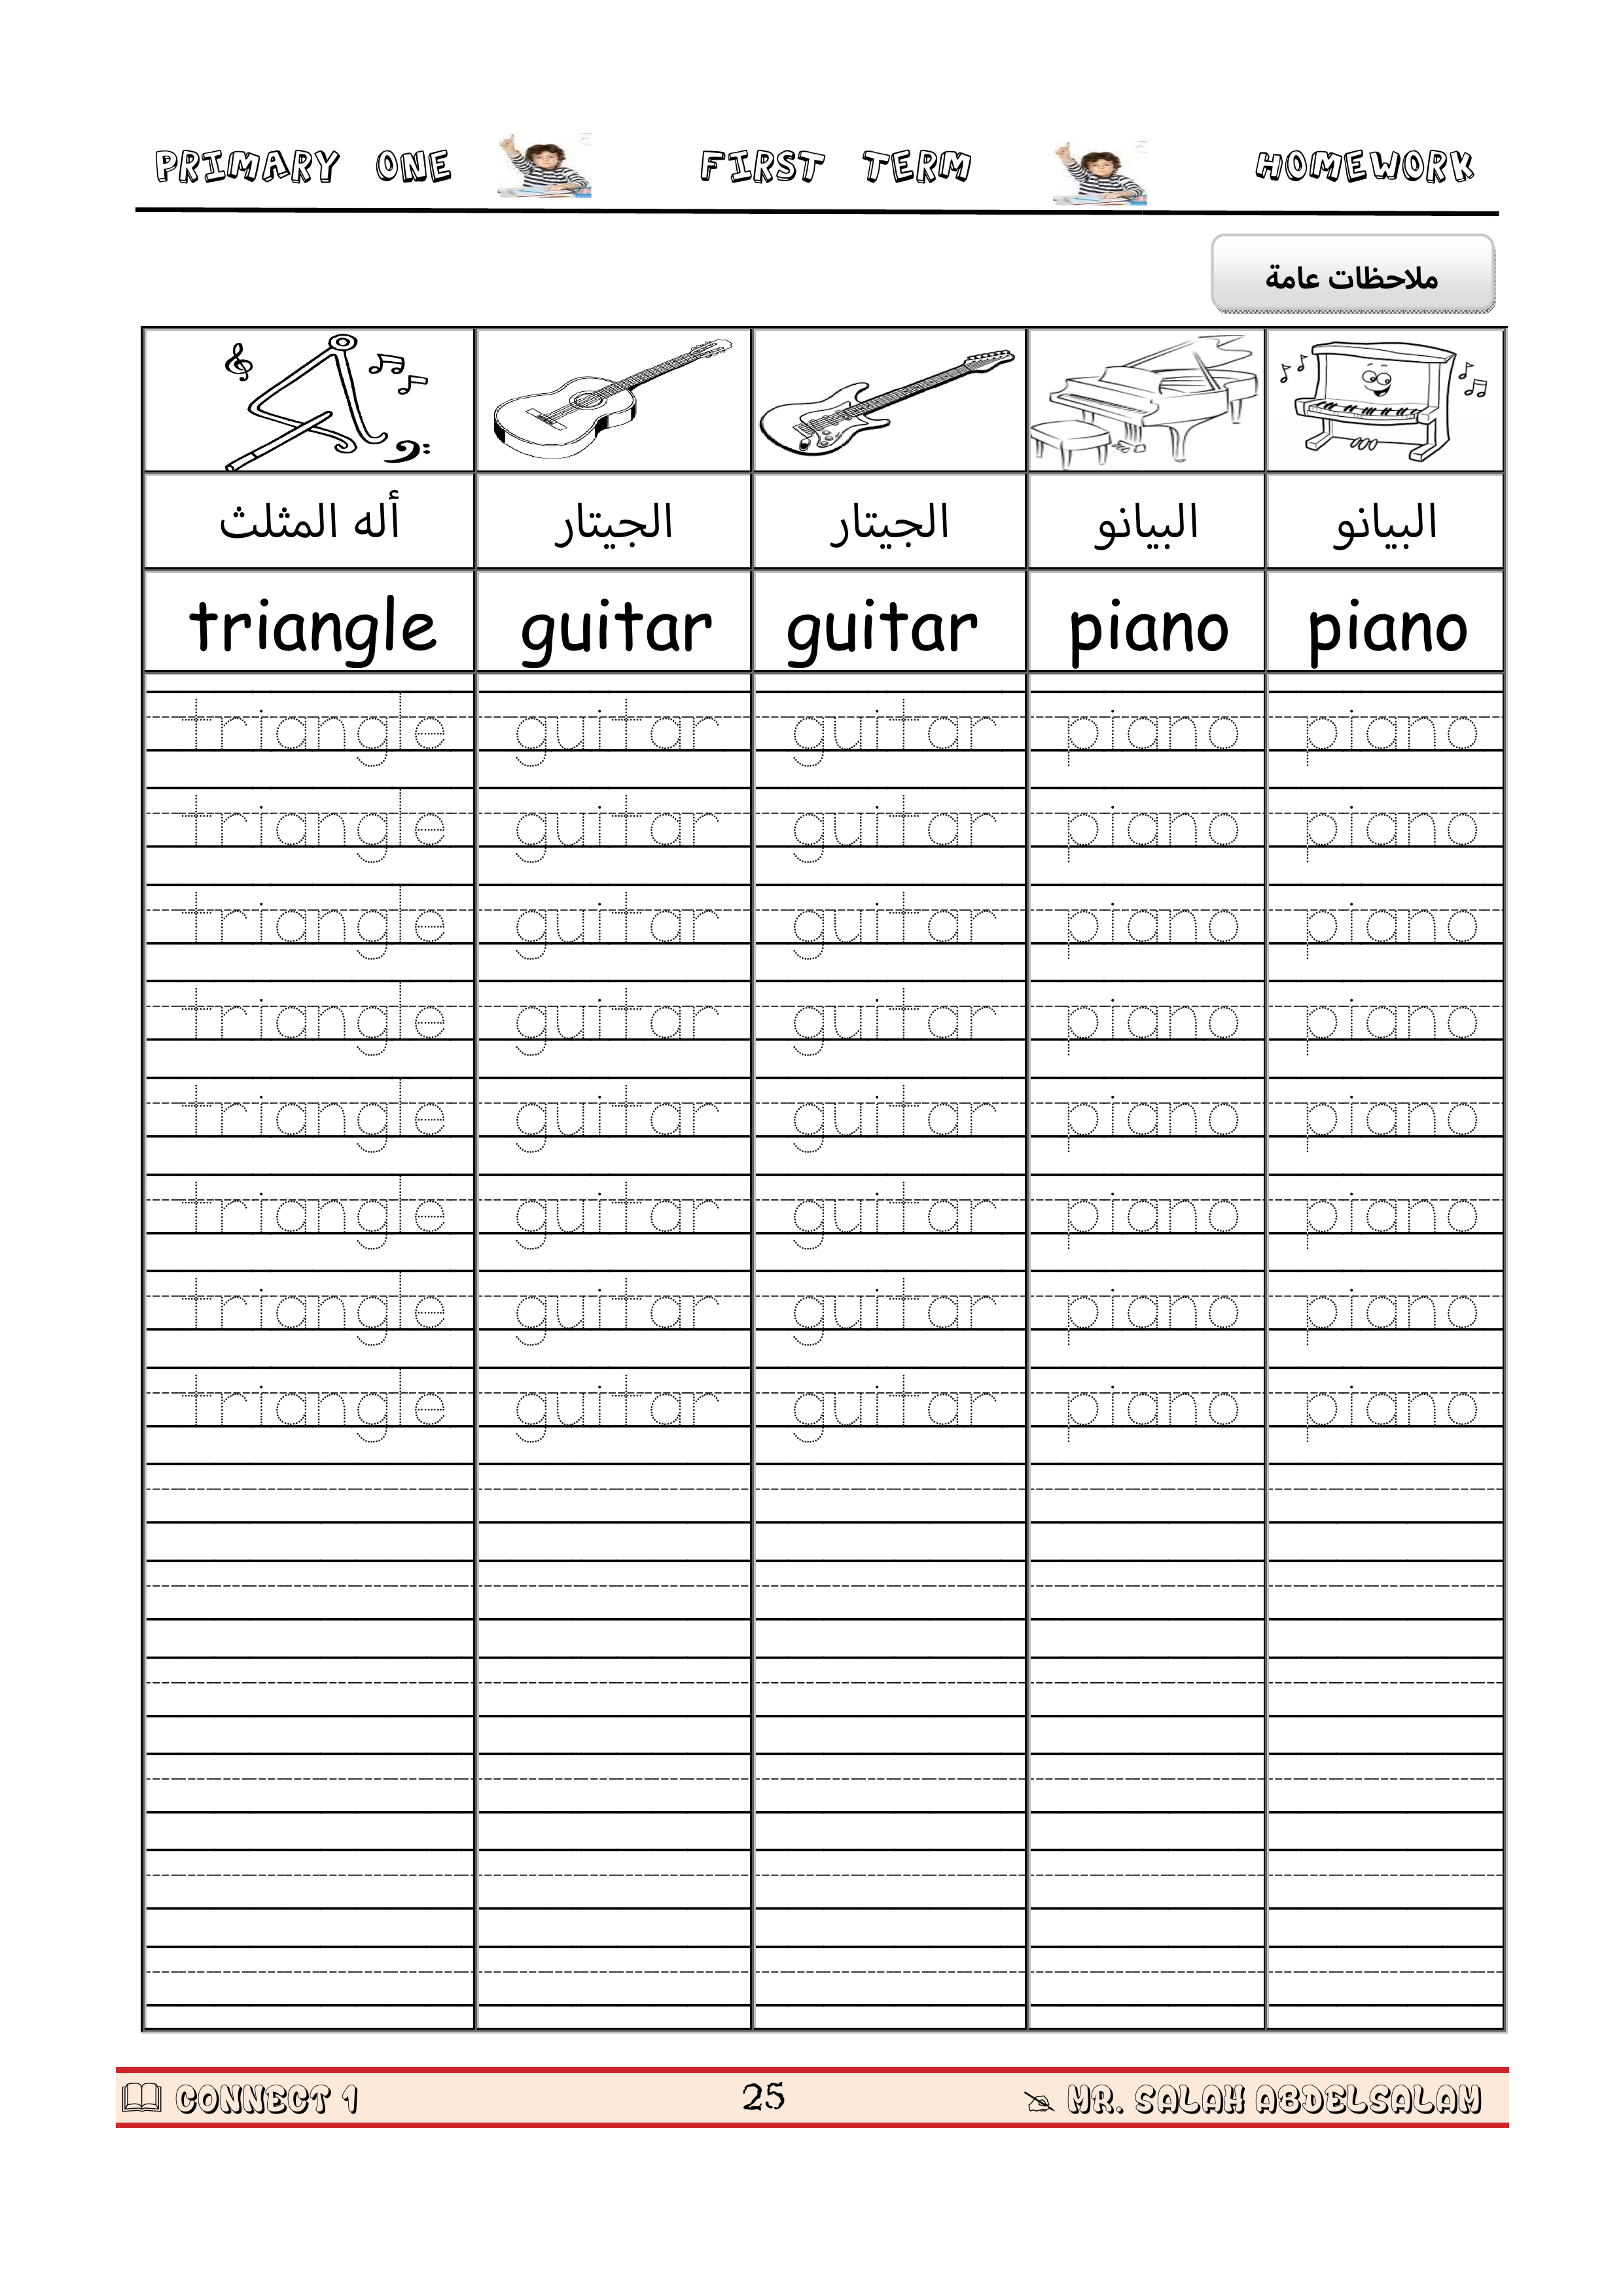 PRIMARY ONE FIRST TERM HOMEWORK
ملاحظات عامة
أله المثلث الجيتار الجيتار البيانو البيانو
triangle guitar guitar piano piano
triangle guitar guitar piano piano
triangle guitar guitar piano piano
triangle guitar guitar piano piano
triangle guitar guitar piano piano
triangle guitar guitar piano piano
triangle guitar guitar piano piano
triangle guitar guitar piano piano
triangle guitar guitar piano piano
CONNECT 1 25 MR. SALAH ABDELSALAM